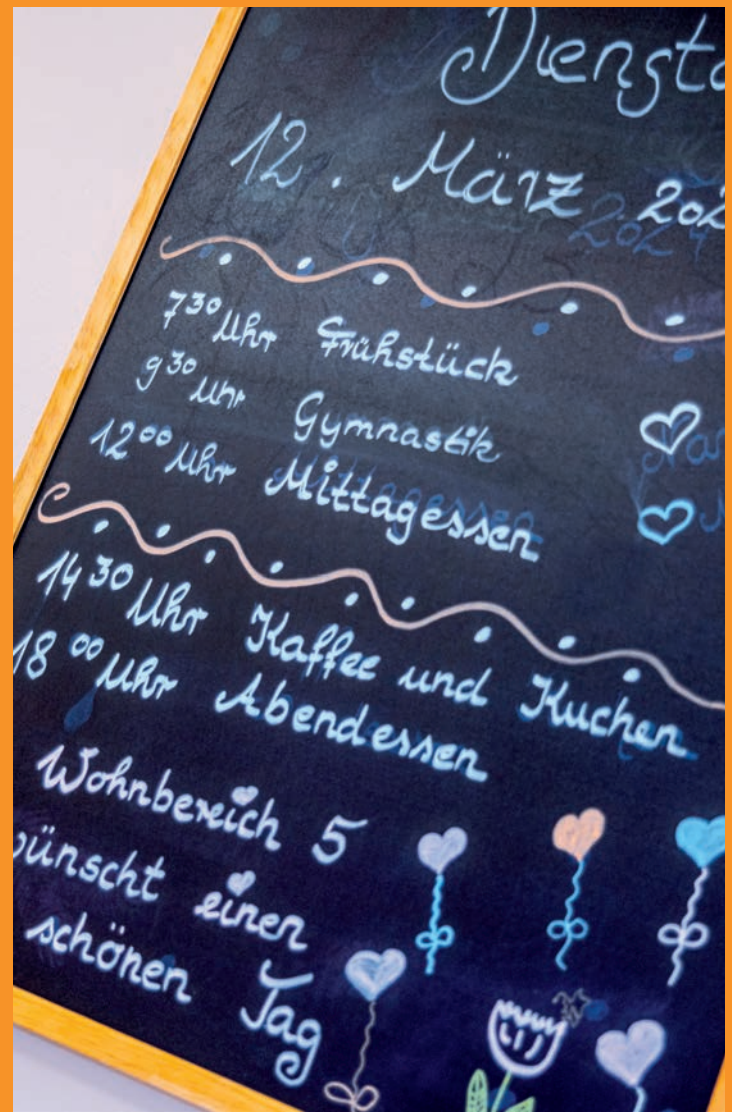 Diensta
12. März 202
7³⁰ Uhr Frühstück
9³⁰ Uhr Gymnastik
12⁰⁰ Uhr Mittagessen
14³⁰ Uhr Kaffee und Kuchen
18⁰⁰ Uhr Abendessen
Wohnbereich 5
wünscht einen
schönen Tag